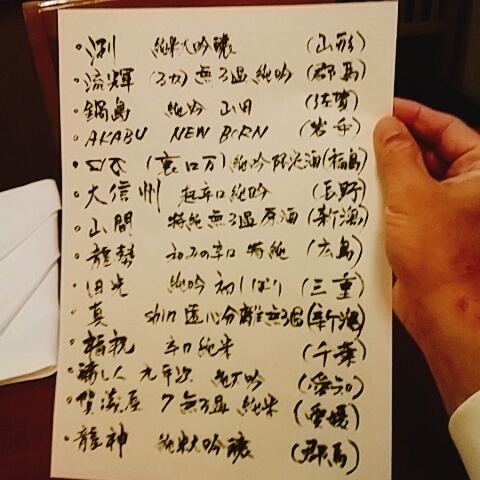 ・洌 純米大吟醸 (山形)
・流輝 (るか) 無ろ過 純吟 (郡馬)
・鍋島 純吟 山田 (佐賀)
・AKABU NEW BORN (岩手)
・ロ万 (裏ロ万) 純吟 限定酒 (福島)
・大信州 超辛口純吟 (長野)
・山間 特純無ろ過原酒 (新潟)
・龍勢 和みの辛口 特純 (広島)
・田光 純吟 初しぼり (三重)
・真 shin 遠心分離無ろ過 (新潟)
・福祝 辛口純米 (千葉)
・醸し人 九平次 純大吟 (愛知)
・賀儀屋 無ろ過 純米 (愛媛)
・龍神 純米大吟醸 (郡馬)